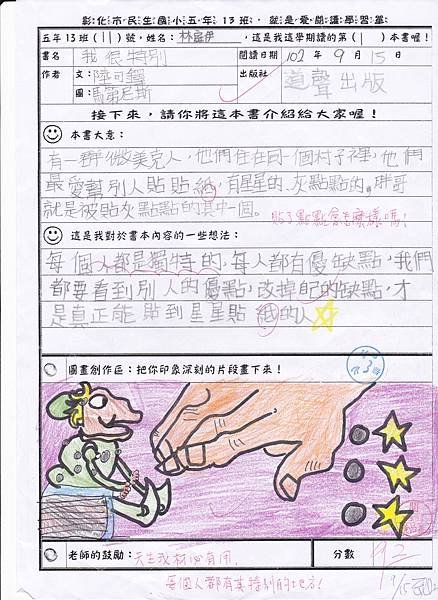 彰化市民生國小五年13班，就是愛閱讀學習單
五年13班(11)號，姓名：林庭伊，這是我這學期讀的第(1)本書喔！
書名 我很特別 閱讀日期 102年9月15日
作者 文：陸可鐸 出版社 道聲出版
圖：馬第尼斯
接下來，請你將這本書介紹給大家喔！
本書大意：
有一群微美克人，他們住在同一個村子裡，他們
最愛幫別人貼貼紙，有星星的、灰點點的。胖哥
就是被貼灰點點的其中一個。
貼了點點會怎麼樣嗎？
這是我對於書本內容的一些想法：
每個人都是獨特的，每人都有優缺點，我們
都要看到別人的優點，改掉自己的缺點，才
是真正能貼到星星貼紙的人
圖畫創作區：把你印象深刻的片段畫下來！
老師的鼓勵：天生我材必有用， 分數 92
每個人都有其特別的地方！ 9/15